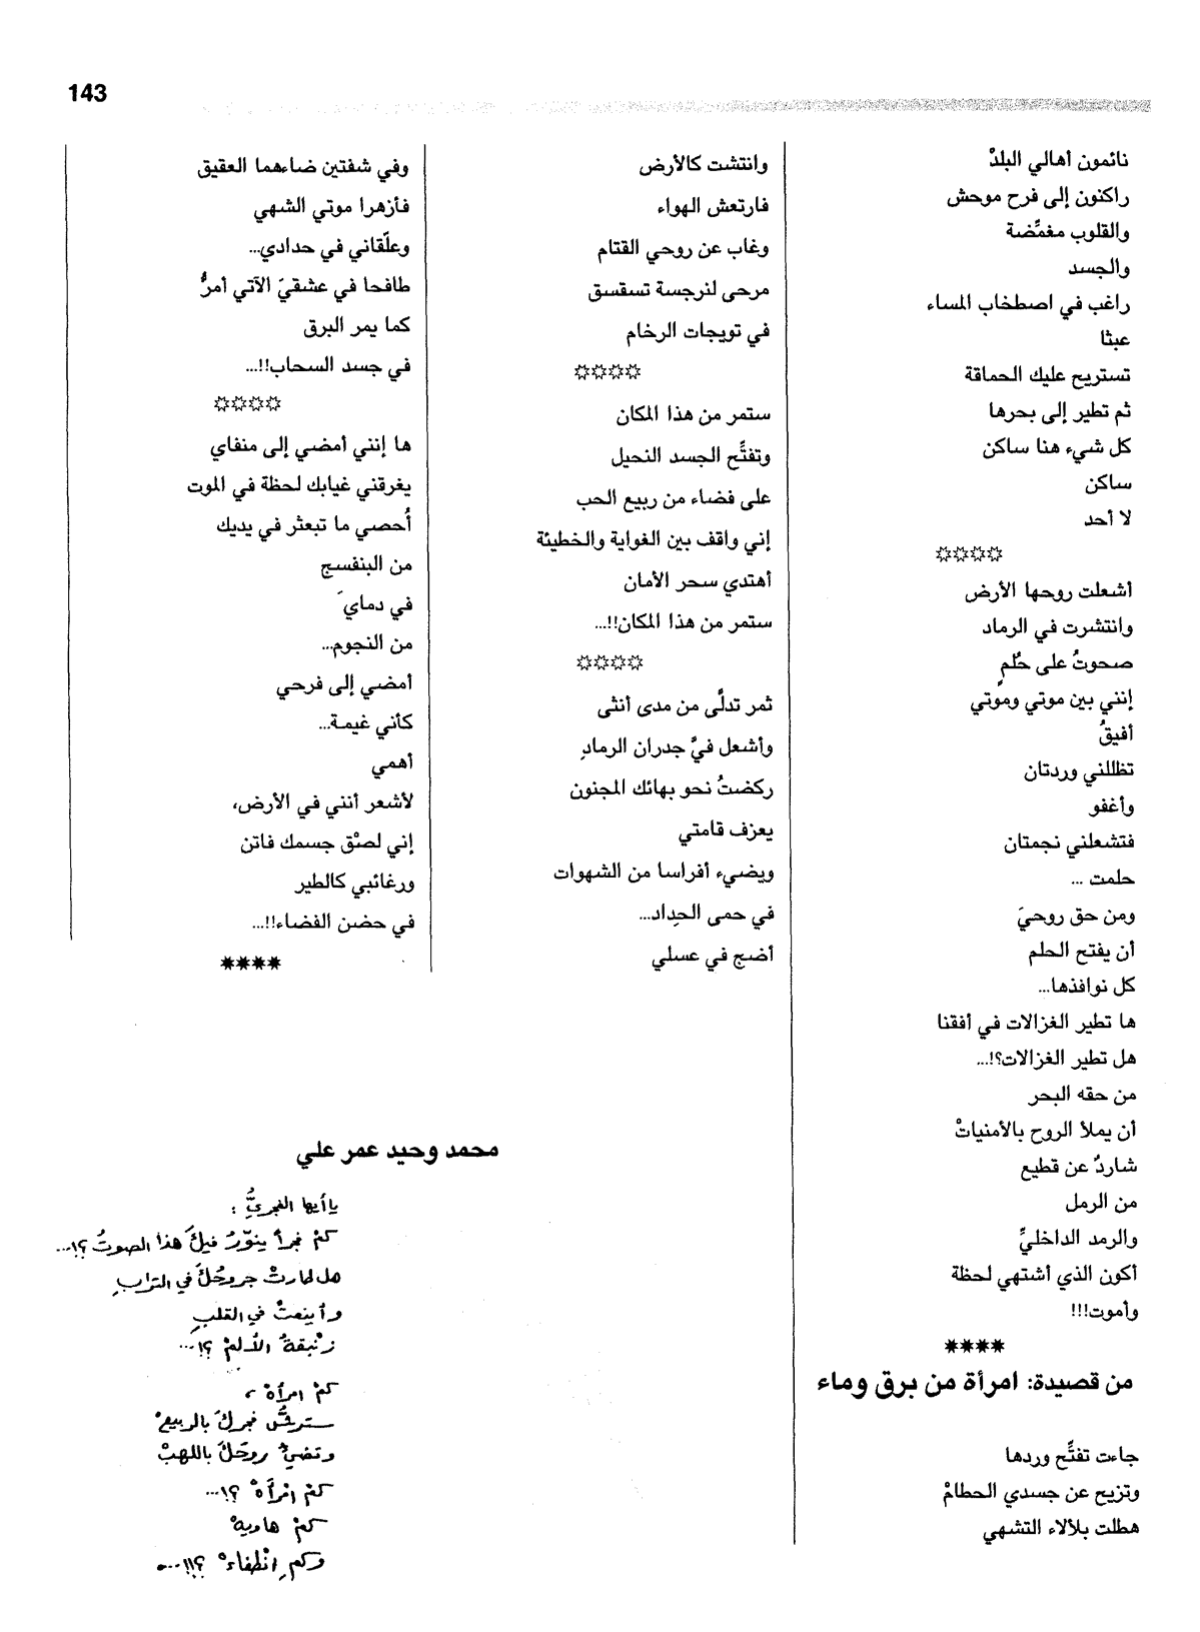 143
نائمون أهالي البلدْ
راكنون إلى فرح موحش
والقلوب مغمِّضة
والجسد
راغب في اصطخاب المساء
عبثا
تستريح عليك الحماقة
ثم تطير إلى بحرها
كل شيء هنا ساكن
ساكن
لا أحد
أشعلت روحها الأرض
وانتشرت في الرماد
صحوتُ على حُلمٍ
إنني بين موتي وموتي
أفيقُ
تظللني وردتان
وأغفو
فتشعلني نجمتان
حلمت ...
ومن حق روحيَ
أن يفتح الحلم
كل نوافذها...
ها تطير الغزالات في أفقنا
هل تطير الغزالات؟!...
من حقه البحر
أن يملأ الروح بالأمنياتْ
شاردٌ عن قطيع
من الرمل
والرمد الداخليِّ
أكون الذي أشتهي لحظة
وأموت!!!
****
من قصيدة: امرأة من برق وماء
جاءت تفتِّح وردها
وتزيح عن جسدي الحطامْ
هطلت بلألاء التشهي
وانتشت كالأرض
فارتعش الهواء
وغاب عن روحي القتام
مرحى لنرجسة تسقسق
في تويجات الرخام
ستمر من هذا المكان
وتفتِّح الجسد النحيل
على فضاء من ربيع الحب
إني واقف بين الغواية والخطيئة
أهتدي سحر الأمان
ستمر من هذا المكان!!...
ثمر تدلَّى من مدى أنثى
وأشعل فيَّ جدران الرمادِ
ركضتُ نحو بهائك المجنون
يعزف قامتي
ويضيء أفراسا من الشهوات
في حمى الحِداد...
أضج في عسلي
وفي شفتين ضاءهما العقيق
فأزهرا موتي الشهي
وعلّقاني في حدادي...
طافحا في عشقيَ الآتي أمرُّ
كما يمر البرق
في جسد السحاب!!...
ها إنني أمضي إلى منفاي
يغرقني غيابك لحظة في الموت
أُحصي ما تبعثر في يديك
من البنفسج
في دمايَ
من النجوم...
أمضي إلى فرحي
كأني غيمة...
أهمي
لأشعر أنني في الأرض،
إني لصْق جسمك فاتن
ورغائبي كالطير
في حضن الفضاء!!...
****
محمد وحيد عمر علي
ياأيها الغجريُّ :
كمْ فجراً ينوّرُ فيكَ هذا الصوتُ ؟!...
هل طارتْ جروحُكَ في الترابِ
وأينعتْ في القلبِ
زنْبقةُ الألمْ ؟!...
كمْ امرأةْ ،
ستر فجركَ بالربيعْ
وتضيءُ روحَكَ باللهبْ
كمْ امْرأةْ ؟!...
كمْ هاويةْ
وكمِ انْطفاءْ ؟!!...